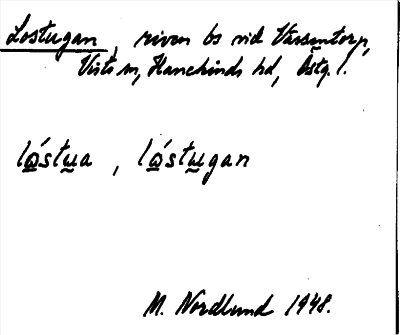 Lostugan, riven bs vid Varsmtorp,
Vists sn, Hanekinds hd, Östg. l.
lǻstu̲a, lǻstu̲gan
M. Nordlund 1948.